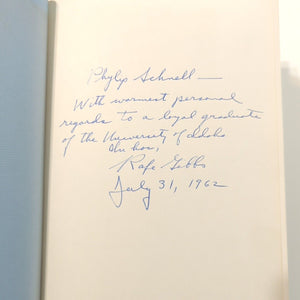 Phylip Schnell—
With warmest personal
regards to a loyal graduate
of the University of Idaho
Rafe Gibbs
July 31, 1962